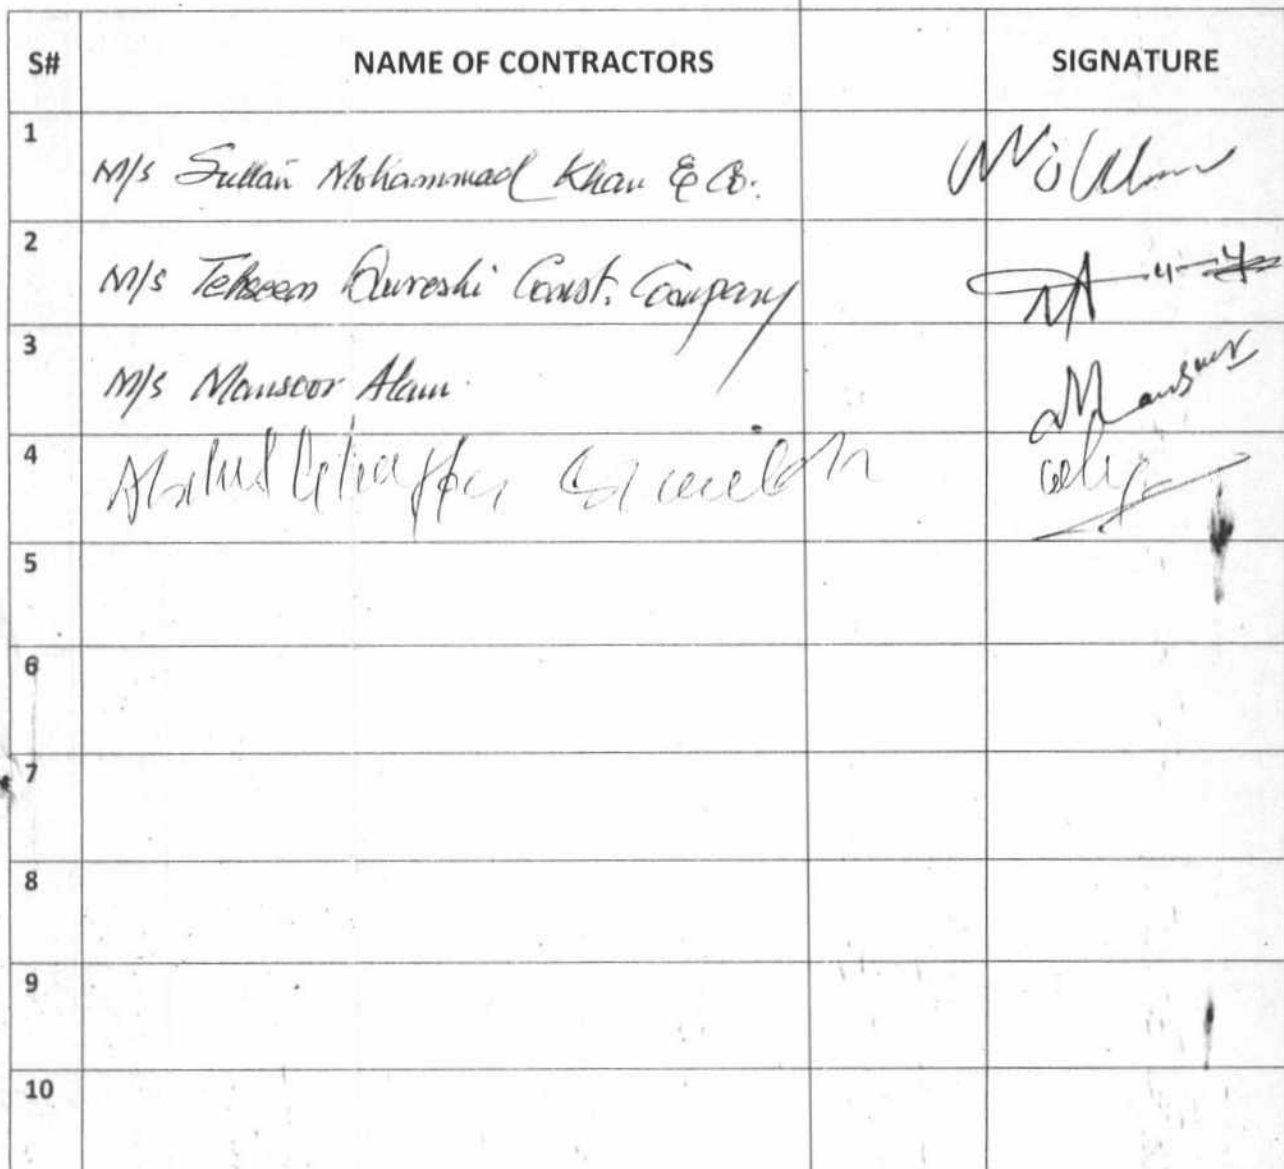 S# NAME OF CONTRACTORS SIGNATURE
1 M/s Sultan Mohammad Khan & Co.
2 M/s Tehseen Qureshi Const. Company
3 M/s Mansoor Alam Mansoor
4 Abdul Ghaffar
5
6
7
8
9
10